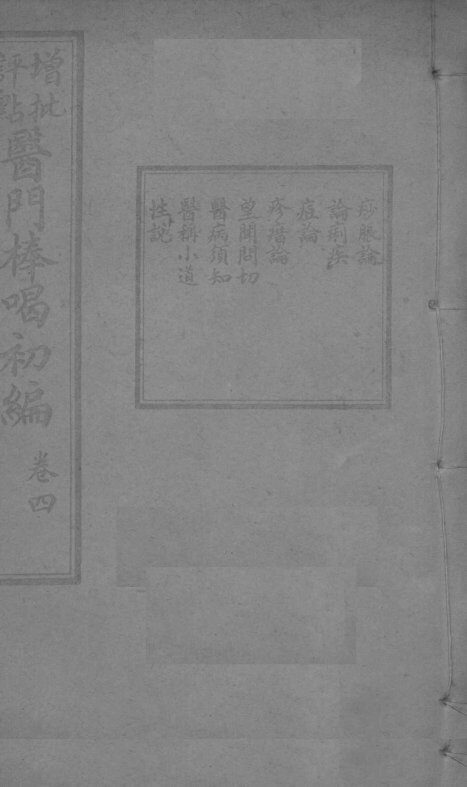 痧脹論
論痢疾
痘論
疹瘄論
望聞問切
醫病須知
醫稱小道
性說
增批
評點
醫門棒喝初編
卷四